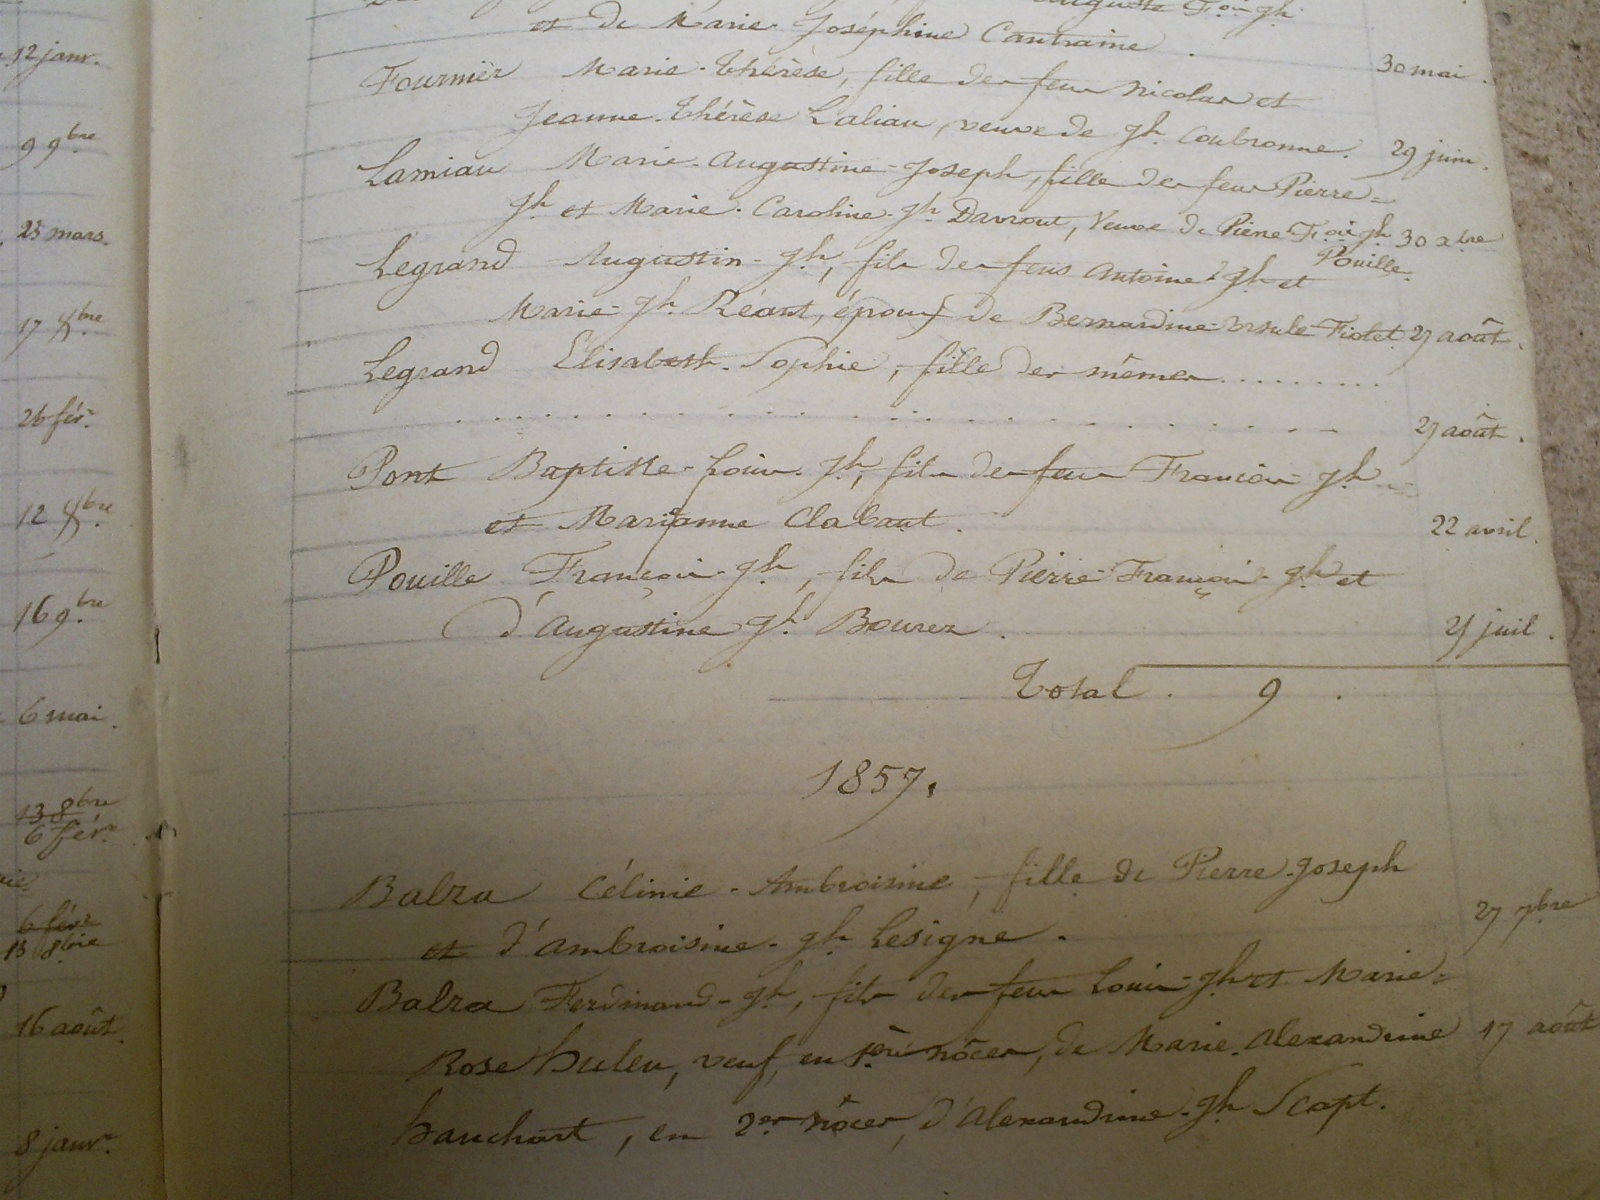 12 janv.
9 9bre
23 mars.
17 8bre
26 fér.
12 8bre
16 9bre
6 mai.
13 8bre
6 fér.
6 févr
13 8bre
16 août.
8 janvr.
Auguste Fçois jh
et de Marie Joséphine Cantraine.
30 mai.
Fournier Marie-Thérèse, fille des feus Nicolas et
Jeanne-Thérèse Laliau, veuve de jh Coubronne. 29 juin.
Lamiau Marie-Augustine-Joseph, fille des feus Pierre=
jh et Marie-Caroline-jh Davrout, Veuve de Pierre Fçois jh 30 xbre
Pouille.
Legrand Augustin-jh, fils des feus Antoine jh et
Marie-jh Réant, époux de Bernardine-Ursule Fiolet 27 août.
Legrand Elisabeth-Sophie, fille des mêmes.........
27 août.
Pont Baptiste-Louis-jh, fils des feus François-jh
et Marianne Clabaut. 22 avril.
Pouille François-jh, fils de Pierre-François-jh et
d'Augustine jh Bourez. 25 juil.
Total. 9.
1857.
Balza Célinie-Ambroisine, fille de Pierre-Joseph
et d'Ambroisine-jh Lesigne. 27 7bre
Balza Ferdinand-jh, fils des feus Louis-jh et Marie=
Rose Huleu, veuf, en 1ères nôces, de Marie-Alexandrine 17 août
Hauchart, en 2es nôces, d'Alexandrine-jh Scapt.